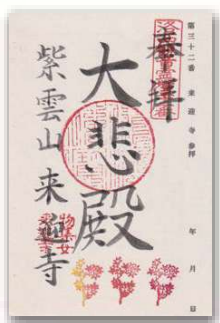 第三十二番 来迎寺参拝 年 月 日
奉拝
大悲殿
紫雲山来迎寺